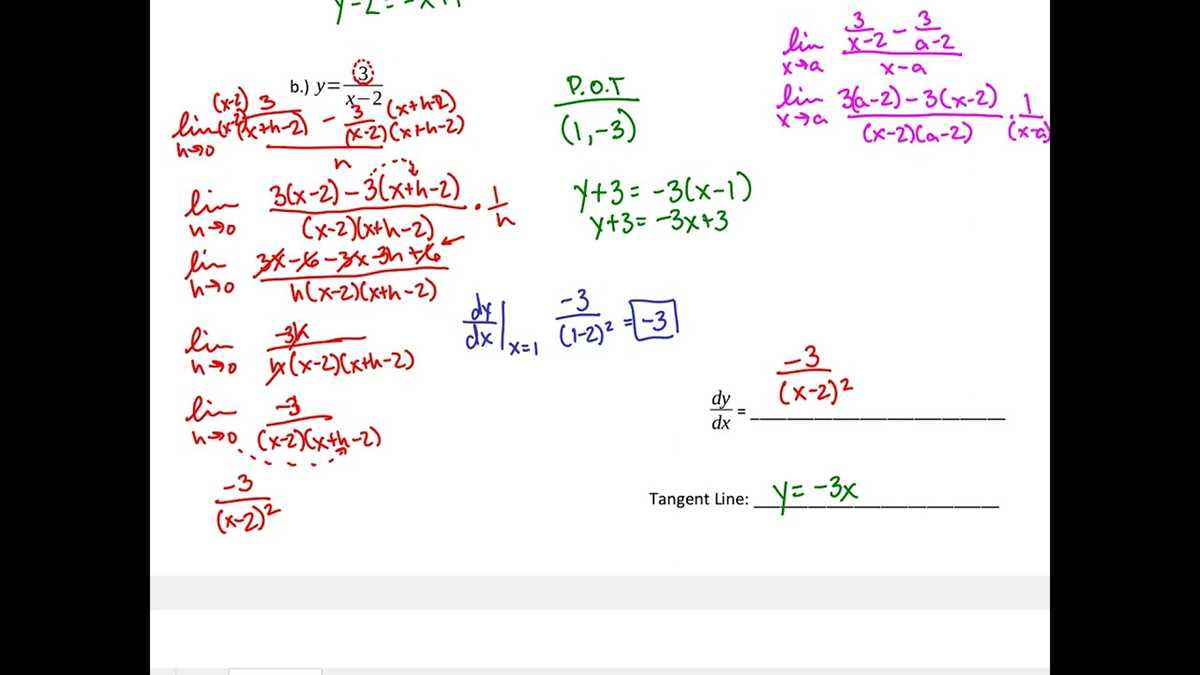 y-2=-x+1
b.) y= 3/(x-2)
lim h→0 ((x-2) 3/((x-2)(x+h-2)) - 3 (x+h-2)/((x-2)(x+h-2)))/h
lim h→0 (3(x-2)-3(x+h-2))/((x-2)(x+h-2)) · 1/h
lim h→0 (3x-6-3x-3h+6)/(h(x-2)(x+h-2))
lim h→0 -3h/(h(x-2)(x+h-2))
lim h→0 -3/((x-2)(x+h-2))
-3/(x-2)²
P.O.T
(1,-3)
y+3= -3(x-1)
y+3= -3x+3
dy/dx|x=1 -3/(1-2)² = -3
lim x→a (3/(x-2) - 3/(a-2))/(x-a)
lim x→a (3(a-2)-3(x-2))/((x-2)(a-2)) · 1/(x-a)
dy/dx = -3/(x-2)²
Tangent Line: y= -3x